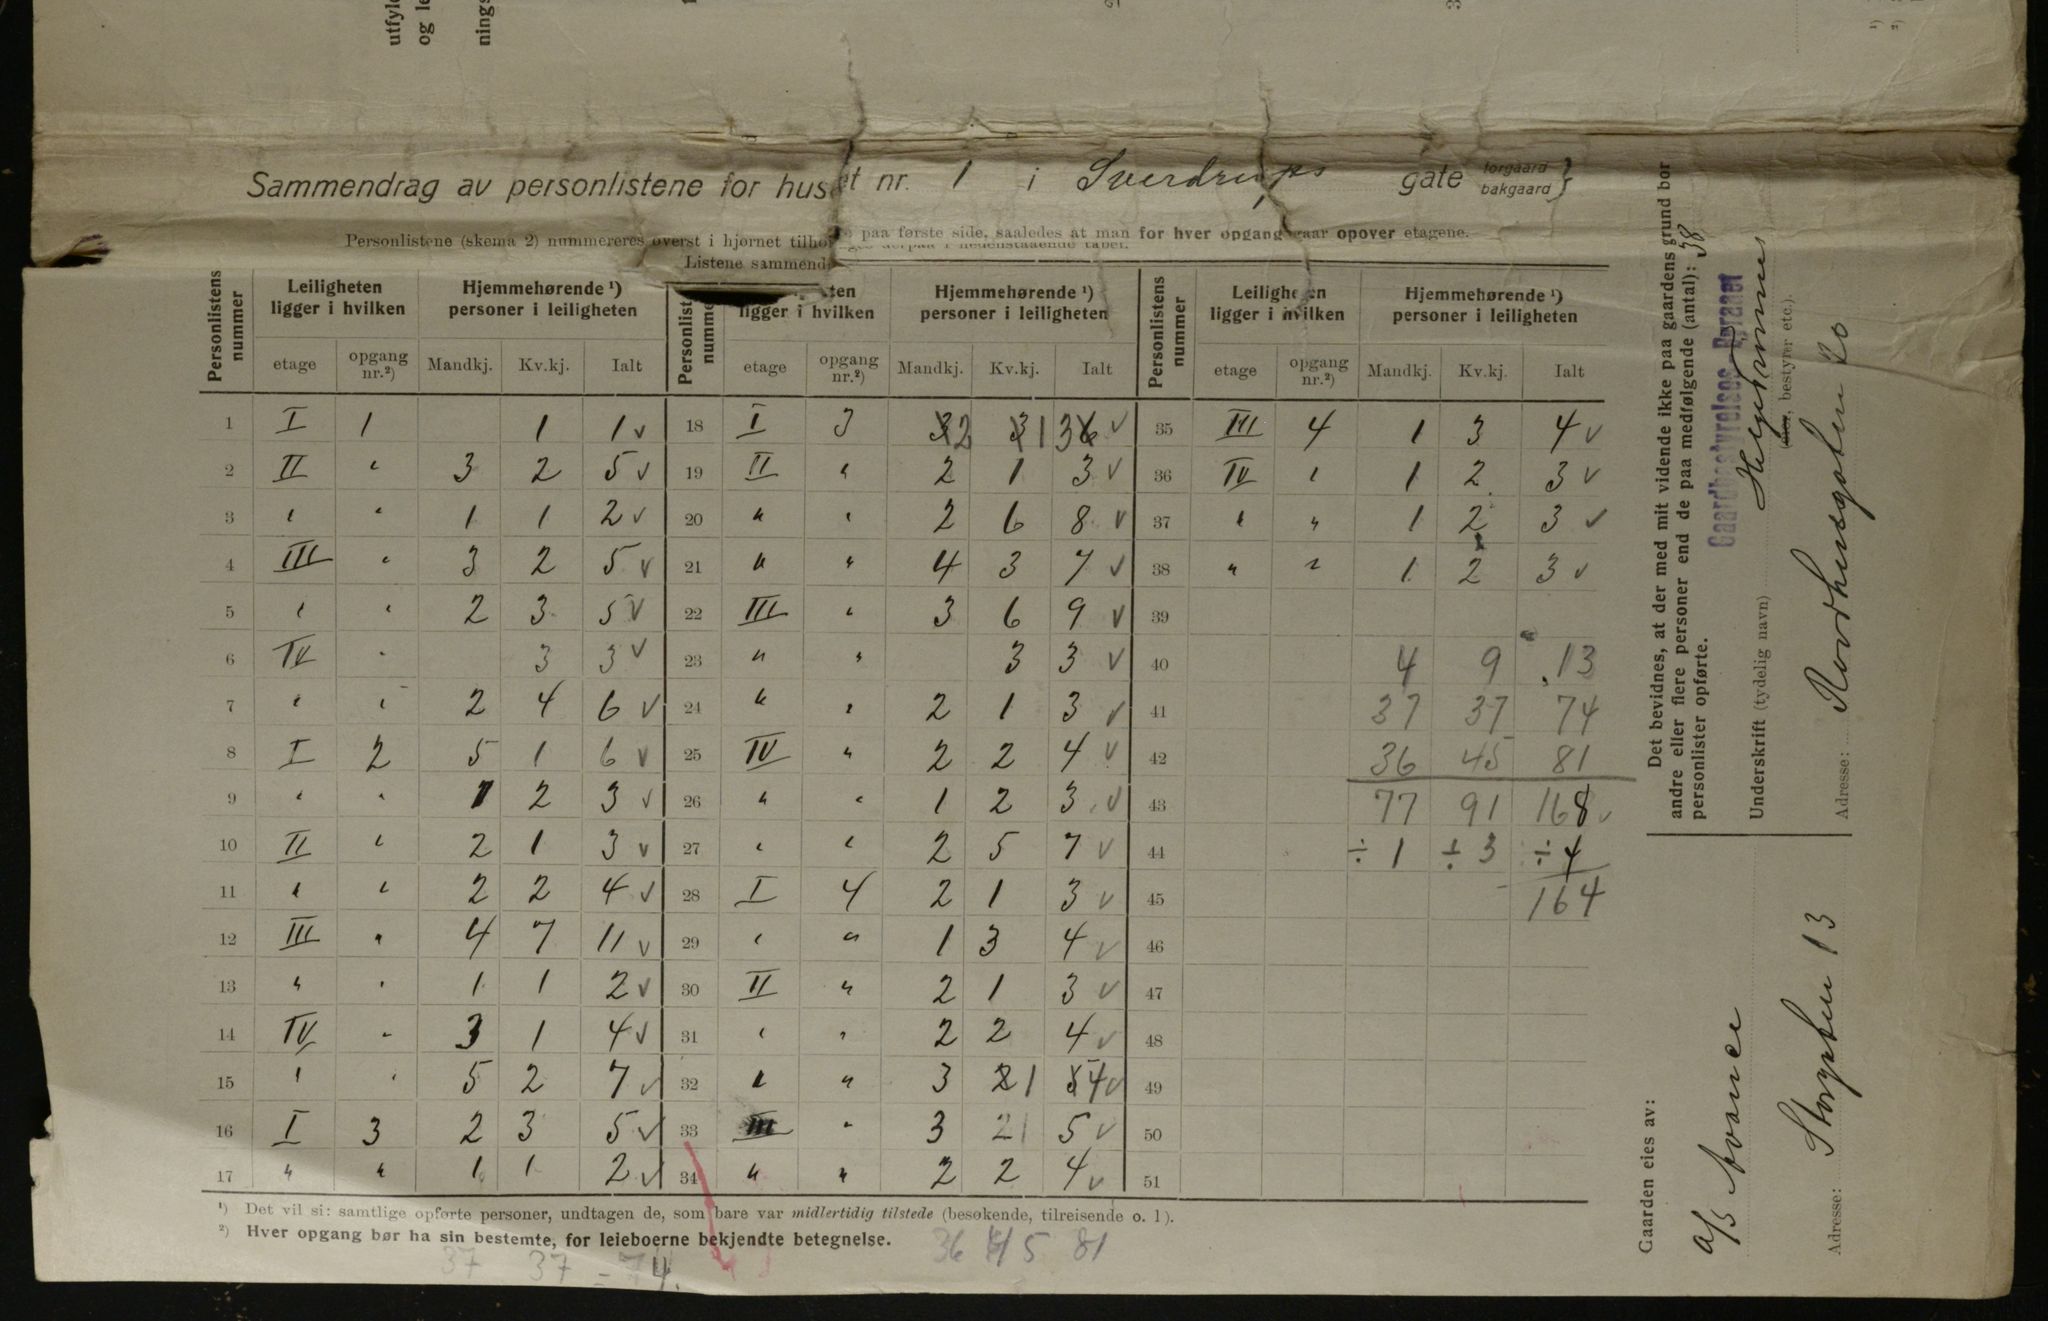 utfyl
og le
nings
Sammendrag av personlistene for huset nr. 1 i Sverdrups gate forgaard bakgaard}
Personlistene (skema 2) nummereres øverst i hjørnet paa første side, saaledes at man for hver opgang gaar opover etagene.
Listene
Personlistens nummer | Leiligheten ligger i hvilken | Hjemmehørende ¹) personer i leiligheten | Personlist nummer | ten ligger i hvilken | Hjemmehørende ¹) personer i leiligheten | Personlistens nummer | Leiligheten ligger i hvilken | Hjemmehørende ¹) personer i leiligheten
etage | opgang nr.²) | Mandkj. | Kv.kj. | Ialt | etage | opgang nr.²) | Mandkj. | Kv.kj. | Ialt | etage | opgang nr.²) | Mandkj. | Kv.kj. | Ialt
1 I 1 1 1 ✓ 18 I 3 3 2 3 1 3 6 ✓ 35 III 4 1 3 4 ✓
2 II " 3 2 5 ✓ 19 II " 2 1 3 ✓ 36 IV " 1 2 3 ✓
3 " " 1 1 2 ✓ 20 " " 2 6 8 ✓ 37 " " 1 2 3 ✓
4 III " 3 2 5 ✓ 21 " " 4 3 7 ✓ 38 " " 1 2 3 ✓
5 " " 2 3 5 ✓ 22 III " 3 6 9 ✓ 39
6 IV " 3 3 ✓ 23 " " 3 3 ✓ 40 4 9 13
7 " " 2 4 6 ✓ 24 " " 2 1 3 ✓ 41 37 37 74
8 I 2 5 1 6 ✓ 25 IV " 2 2 4 ✓ 42 36 45 81
9 " " 1 2 3 ✓ 26 " " 1 2 3 ✓ 43 77 91 168 ✓
10 II " 2 1 3 ✓ 27 " " 2 5 7 ✓ 44 ÷ 1 ÷ 3 ÷ 4
11 " " 2 2 4 ✓ 28 I 4 2 1 3 ✓ 45 164
12 III " 4 7 11 ✓ 29 " " 1 3 4 ✓ 46
13 " " 1 1 2 ✓ 30 II " 2 1 3 ✓ 47
14 IV " 3 1 4 ✓ 31 " " 2 2 4 ✓ 48
15 " " 5 2 7 ✓ 32 " " 3 2 1 5 4 ✓ 49
16 I 3 2 3 5 ✓ 33 III " 3 2 5 ✓ 50
17 " " 1 1 2 ✓ 34 " " 2 2 4 ✓ 51
¹) Det vil si: samtlige opførte personer, undtagen de, som bare var midlertidig tilstede (besøkende, tilreisende o. l).
²) Hver opgang bør ha sin bestemte, for leieboerne bekjendte betegnelse.
37 37 = 74. 36 45 81
Det bevidnes, at der med mit vidende ikke paa gaardens grund bor
andre eller flere personer end de paa medfølgende (antal): 38
personlister opførte.
Gaardbestyrelses-Byraaet
Underskrift (tydelig navn)
(eier, bestyrer etc.).
Adresse: Nordhusgaten 20
Gaarden eies av:
a/s Avance
Adresse: Storgaten 13